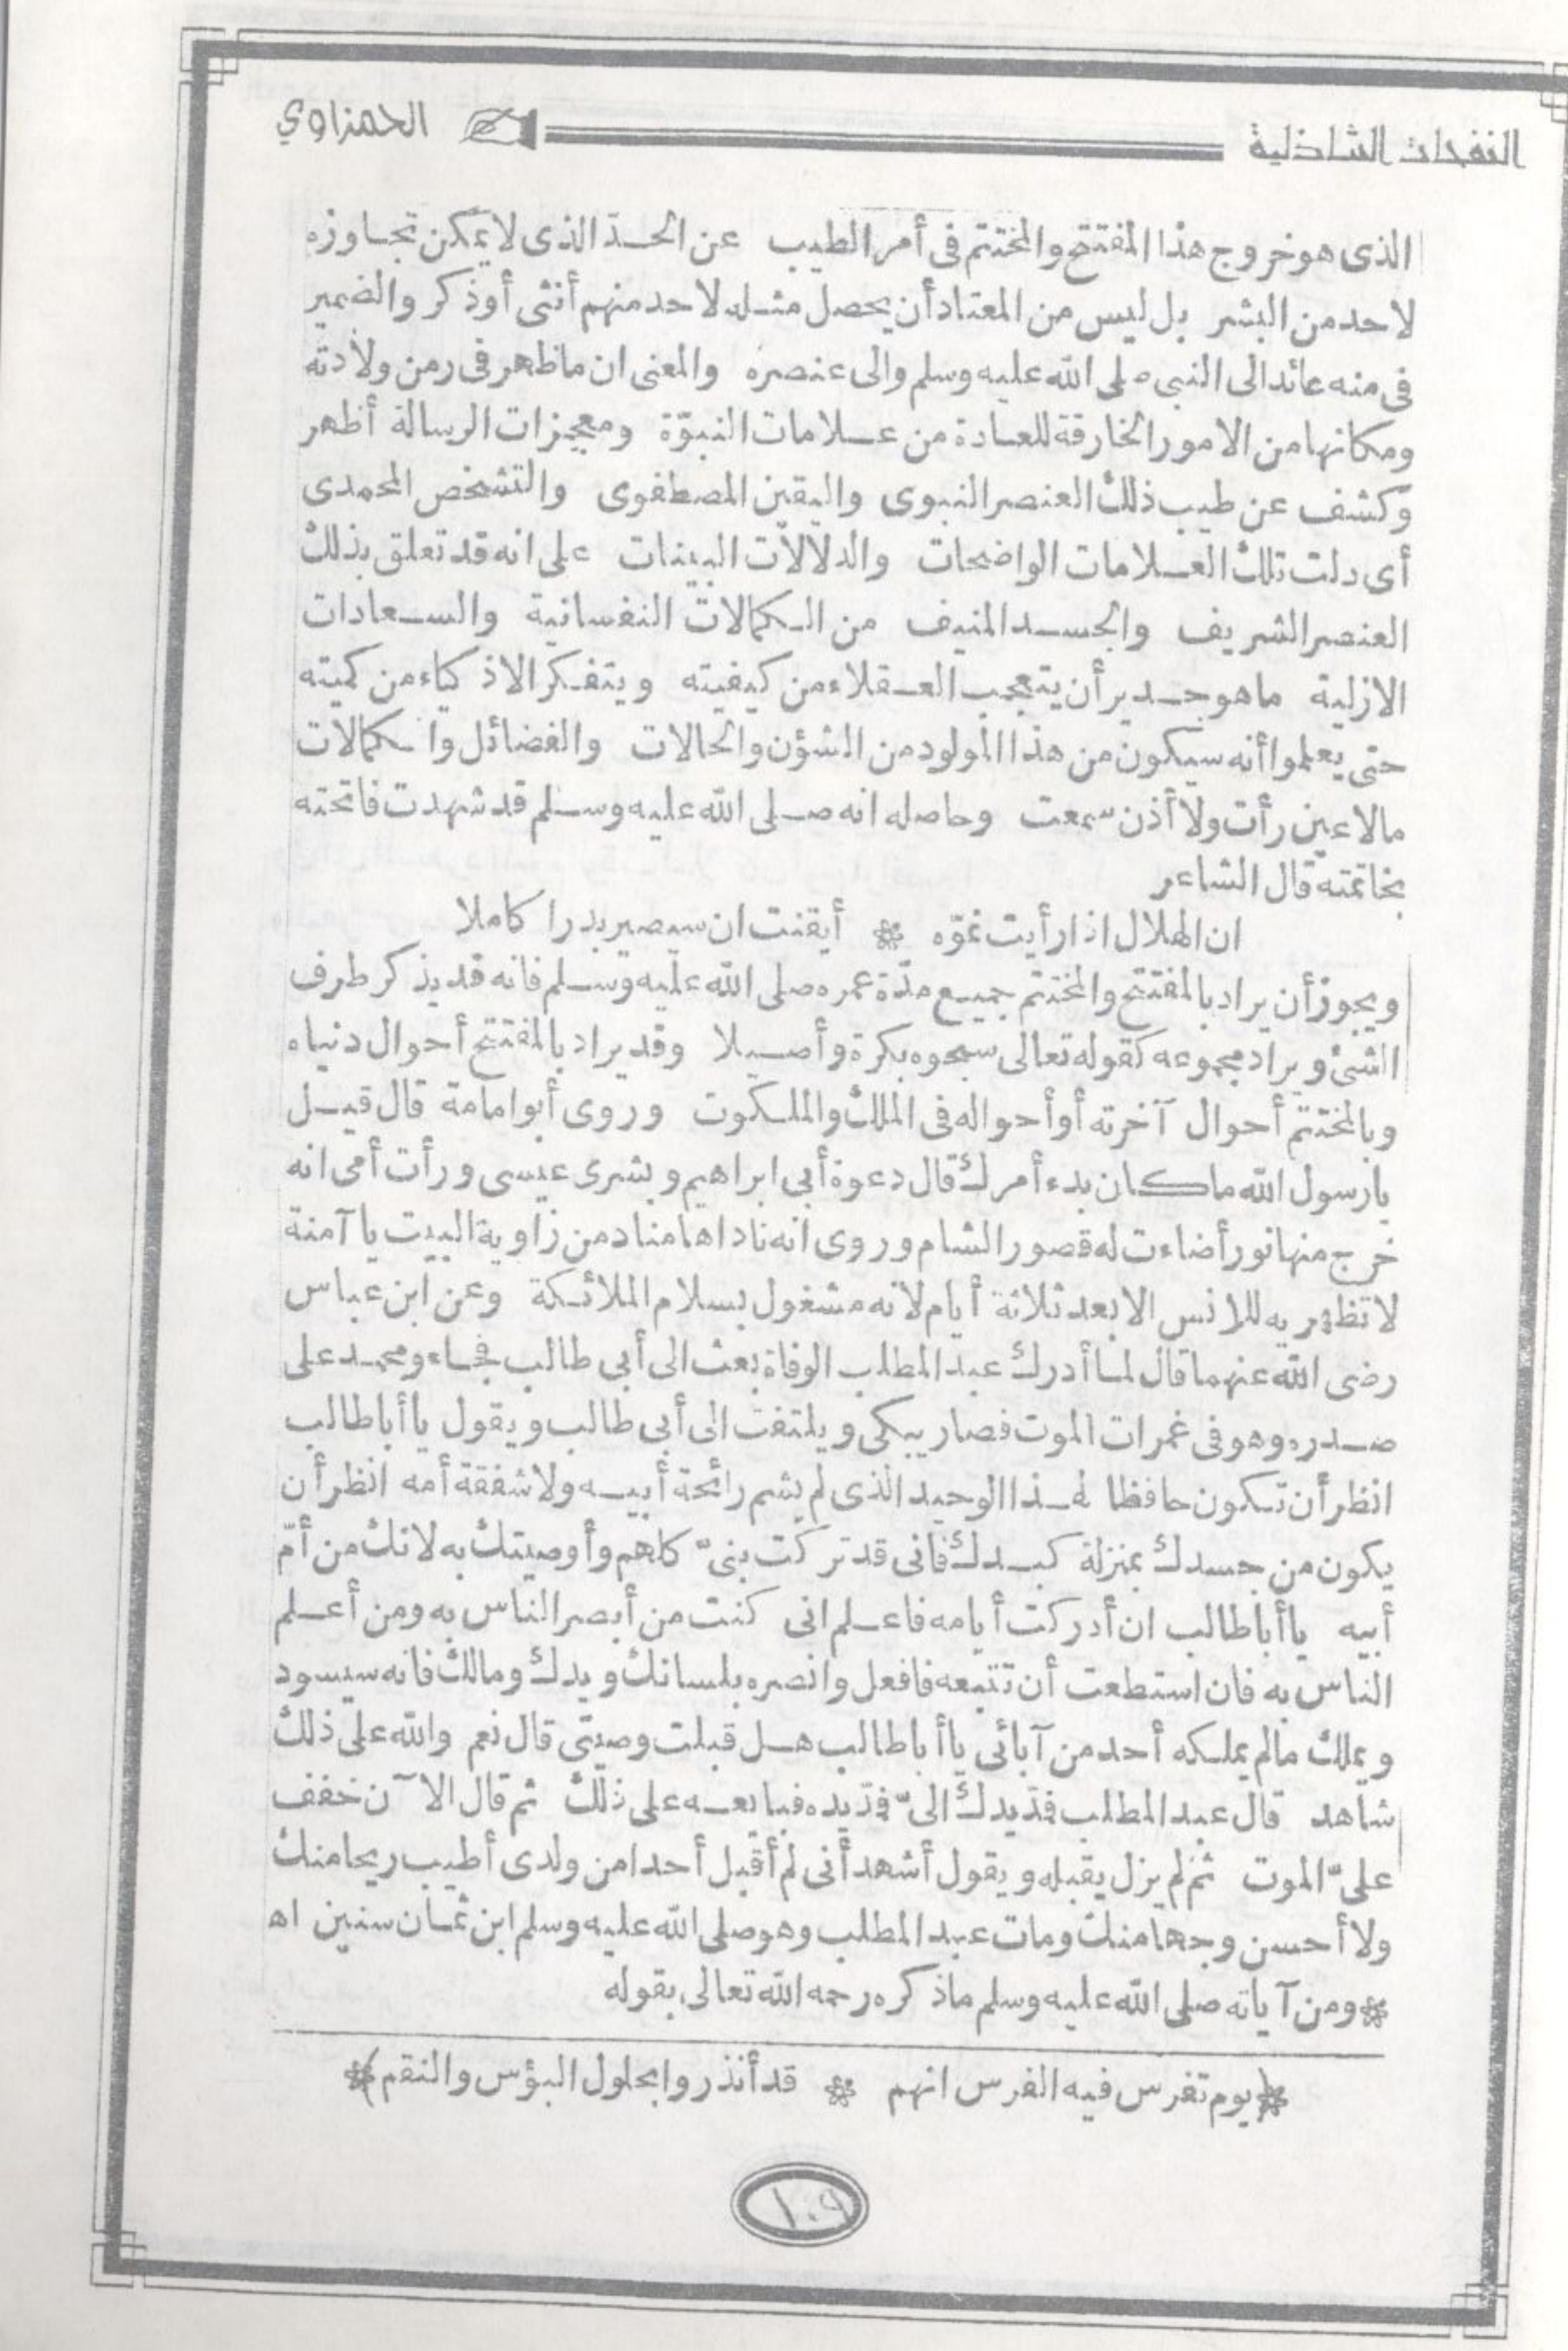 النفحات الشاذلية
الحمزاوي
الذى هو خروج هذا المفتتح والمختتم فى أمر الطيب عن الحد الذى لا يمكن تجاوزه
لاحد من البشر بل ليس من المعتاد أن يحصل مثله لاحد منهم أنثى أو ذكر والضمير
فى منه عائد الى النبى صلى الله عليه وسلم والى عنصره والمعنى ان ما ظهر فى زمن ولادته
ومكانها من الامور الخارقة للعادة من علامات النبوّة ومعجزات الرسالة أظهر
وكشف عن طيب ذلك العنصر النبوى واليقين المصطفوى والتشخص المحمدى
أى دلت تلك العلامات الواضحات والدلالات البينات على انه قد تعلق بذلك
العنصر الشريف والجسد المنيف من الكمالات النفسانية والسعادات
الازلية ما هو جدير أن يتعجب العقلاء من كيفيته ويتفكر الاذكياء من كميته
حتى يعلموا أنه سيكون من هذا المولود من الشؤن والحالات والفضائل والكمالات
مالا عين رأت ولا أذن سمعت وحاصله انه صلى الله عليه وسلم قد شهدت فاتحته
بخاتمته قال الشاعر
ان الهلال اذا رأيت نموّه * أيقنت ان سيصير بدرا كاملا
ويجوز أن يراد بالمفتتح والمختتم جميع مدّة عمره صلى الله عليه وسلم فانه قد يذكر طرف
الشئ ويراد مجموعه كقوله تعالى سبحوه بكرة وأصيلا وقد يراد بالمفتتح أحوال دنياه
وبالمختتم أحوال آخرته أو أحواله فى الملك والملكوت وروى أبو امامة قال قيل
يا رسول الله ما كان بدء أمرك قال دعوة أبى ابراهيم وبشرى عيسى ورأت أمى انه
خرج منها نور أضاءت له قصور الشام وروى انه ناداها مناد من زاوية البيت يا آمنة
لا تظهريه للانس الا بعد ثلاثة أيام لانه مشغول بسلام الملائكة وعن ابن عباس
رضى الله عنهما قال لما أدرك عبد المطلب الوفاة بعث الى أبى طالب فجاء ومحمد على
صدره وهو فى غمرات الموت فصار يبكى ويلتفت الى أبى طالب ويقول يا أبا طالب
انظر أن تكون حافظا لهذا الوحيد الذى لم يشم رائحة أبيه ولا شفقة أمه انظر أن
يكون من جسدك بمنزلة كبدك فانى قد تركت بنىّ كلهم وأوصيتك به لانك من أمّ
أبيه يا أبا طالب ان أدركت أيامه فاعلم انى كنت من أبصر الناس به ومن أعلم
الناس به فان استطعت أن تتبعه فافعل وانصره بلسانك ويدك ومالك فانه سيسود
ويملك مالم يملكه أحد من آبائى يا أبا طالب هل قبلت وصيتى قال نعم والله على ذلك
شاهد قال عبد المطلب فمدّ يدك الىّ فمدّ يده فبايعه على ذلك ثم قال الآن خفف
علىّ الموت ثم لم يزل يقبله ويقول أشهد أنى لم أقبل أحدا من ولدى أطيب ريحا منك
ولا أحسن وجها منك ومات عبد المطلب وهو صلى الله عليه وسلم ابن ثمان سنين اه
* ومن آياته صلى الله عليه وسلم ماذكره رحمه الله تعالى بقوله
*(يوم تفرس فيه الفرس انهم * قد أنذروا بحلول البؤس والنقم)*
١٠٩